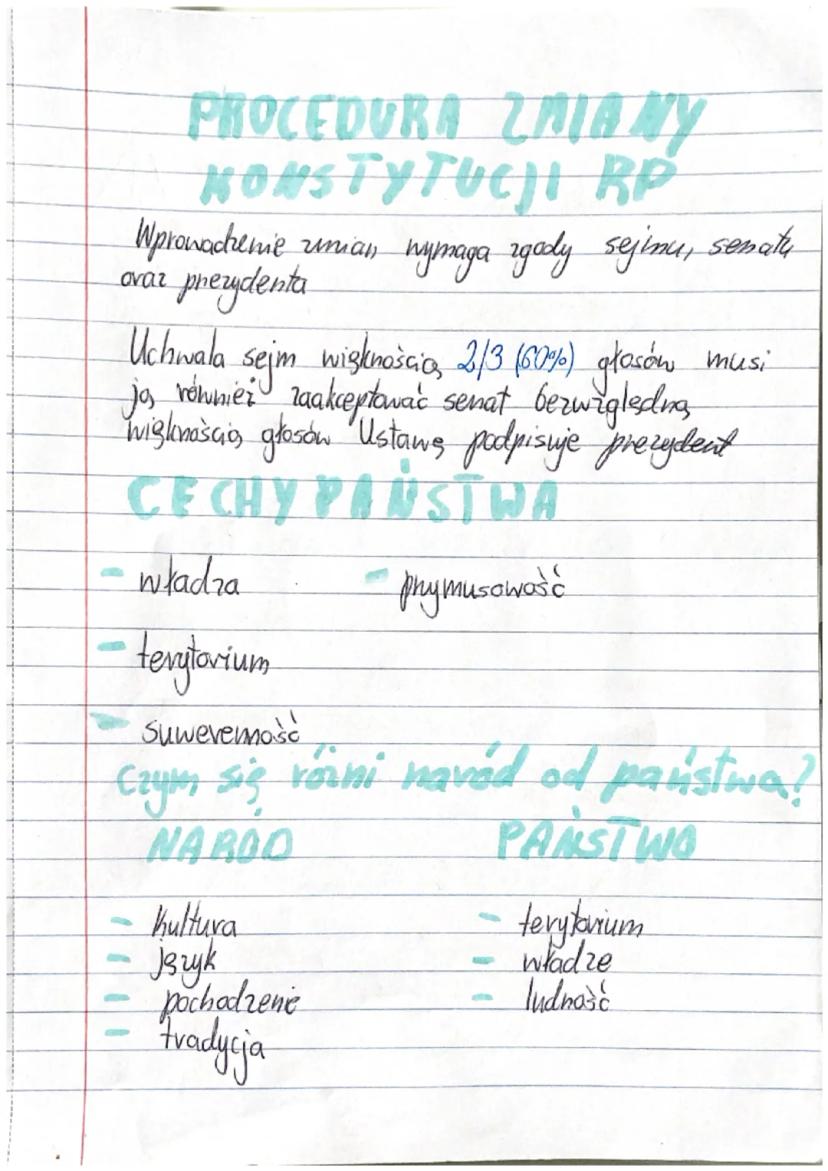 PROCEDURA ZMIANY
KONSTYTUCJI RP
Wprowadzenie zmian wymaga zgody sejmu, senatu
oraz prezydenta
Uchwala sejm większością 2/3 (60%) głosów musi
ją również zaakceptować senat bezwzględną
większością głosów Ustawę podpisuje prezydent
CECHY PAŃSTWA
- władza - przymusowość
- terytorium
- suwerenność
Czym się różni naród od państwa?
NARÓD PAŃSTWO
- kultura - terytorium
- język - władze
- pochodzenie - ludność
- tradycja